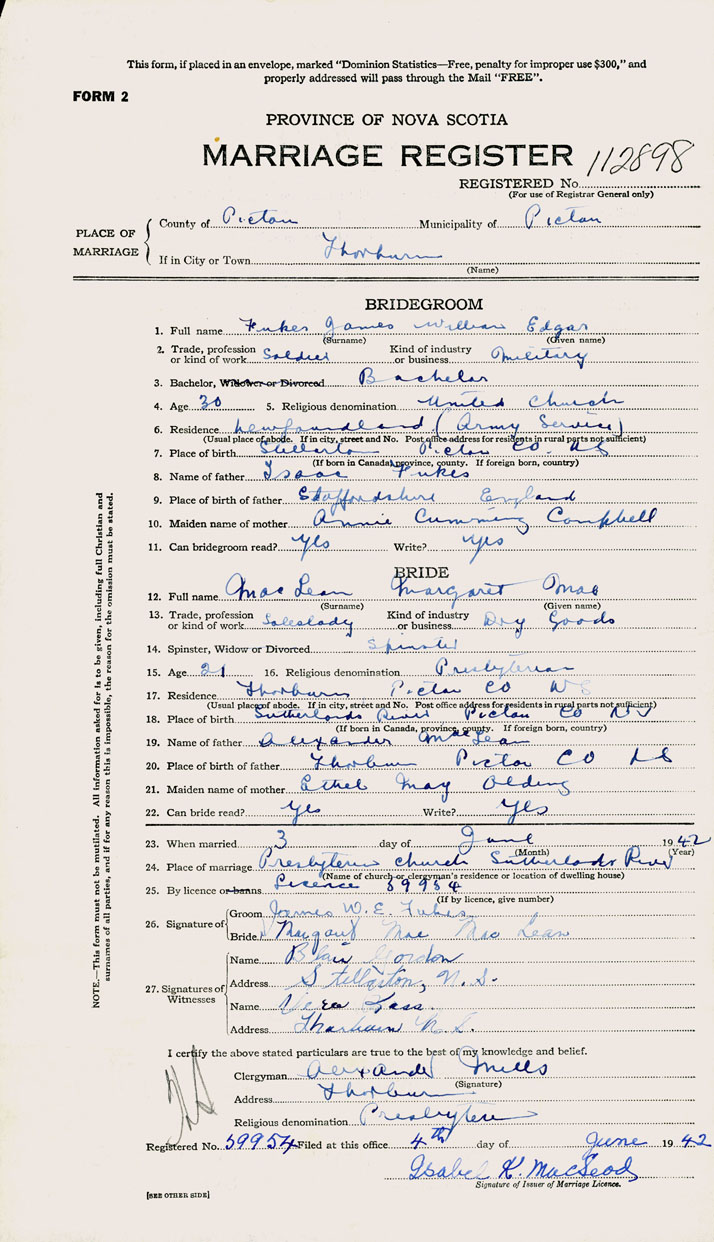 This form, if placed in an envelope, marked "Dominion Statistics—Free, penalty for improper use $300," and
properly addressed will pass through the Mail "FREE".
FORM 2
PROVINCE OF NOVA SCOTIA
MARRIAGE REGISTER 112898
REGISTERED No.
(For use of Registrar General only)
PLACE OF MARRIAGE
County of Pictou Municipality of Pictou
If in City or Town Thorburn
(Name)
BRIDEGROOM
1. Full name Fukes James William Edgar
(Surname) (Given name)
2. Trade, profession or kind of work Soldier Kind of industry or business Military
3. Bachelor, Widower or Divorced Bachelor
4. Age 30 5. Religious denomination United Church
6. Residence Newfoundland (Army Service)
(Usual place of abode. If in city, street and No. Post office address for residents in rural parts not sufficient)
7. Place of birth Stellarton Pictou CO. NS
(If born in Canada, province, county. If foreign born, country)
8. Name of father Isaac Fukes
9. Place of birth of father Staffordshire England
10. Maiden name of mother Annie Cumming Campbell
11. Can bridegroom read? Yes Write? Yes
BRIDE
12. Full name MacLean Margaret Mae
(Surname) (Given name)
13. Trade, profession or kind of work Saleslady Kind of industry or business Dry Goods
14. Spinster, Widow or Divorced Spinster
15. Age 21 16. Religious denomination Presbyterian
17. Residence Thorburn Pictou CO NS
(Usual place of abode. If in city, street and No. Post office address for residents in rural parts not sufficient)
18. Place of birth Sutherlands River Pictou CO NS
(If born in Canada, province, county. If foreign born, country)
19. Name of father Alexander MacLean
20. Place of birth of father Thorburn Pictou CO NS
21. Maiden name of mother Ethel May Olding
22. Can bride read? Yes Write? Yes
23. When married 3 day of June 1942
(Month) (Year)
24. Place of marriage Presbyterian Church Sutherlands River
(Name of church or clergyman's residence or location of dwelling house)
25. By licence or banns Licence 59954
(If by licence, give number)
26. Signature of
Groom James W. E. Fukes
Bride Margaret Mae MacLean
27. Signatures of Witnesses
Name Blair Gordon
Address Stellarton, N.S.
Name Vera
Address Thorburn N.S.
I certify the above stated particulars are true to the best of my knowledge and belief.
Clergyman Alexander Mills
(Signature)
Address Thorburn
Religious denomination Presbyterian
Registered No. 59954 Filed at this office 4th day of June 1942
Isabel K. MacLeod
Signature of Issuer of Marriage Licence.
[SEE OTHER SIDE]
NOTE.—This form must not be mutilated. All information asked for is to be given, including full Christian and
surnames of all parties, and if for any reason this is impossible, the reason for the omission must be stated.